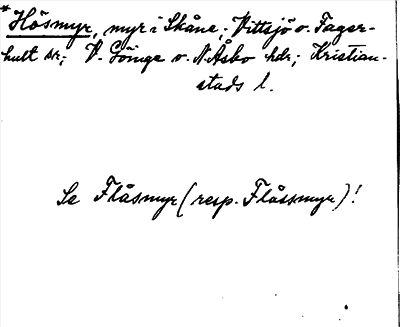 *Hösmyr, myr i Skåne; Vittsjö o. Fager-
hult snr; V. Göinge o. N. Åsbo hdr; Kristian-
stads l.
Se Flåsmyr (resp. Flåssmyr)!